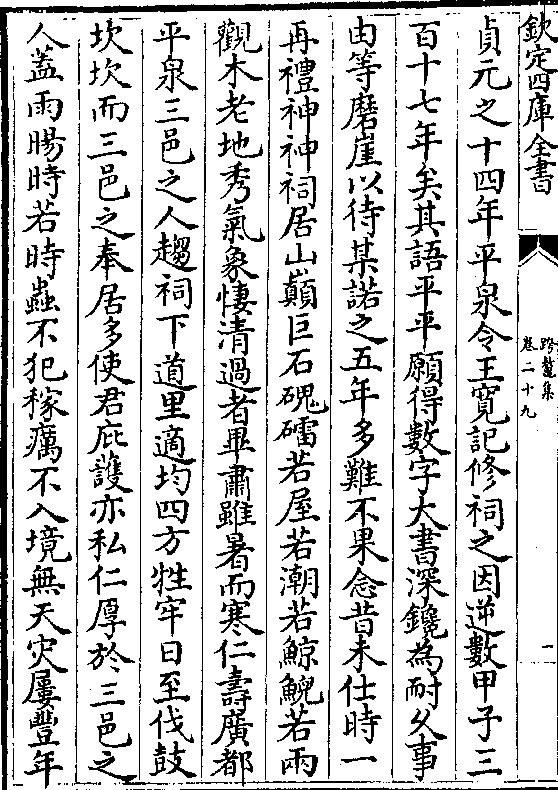 欽定四庫全書
跨鼇集
卷二十九
一
貞元之十四年平泉令王寬記修祠之因逆數甲子三
百十七年矣其語平平願得數字大書深鑱為耐久事
由等磨崖以待某諾之五年多難不果念昔未仕時一
再禮神神祠居山巔巨石磈礌若屋若潮若鯨鯢若雨
觀木老地秀氣象悽清過者畢肅雖暑而寒仁壽廣都
平泉三邑之人趨祠下道里適均四方牲牢日至伐鼓
坎坎而三邑之奉居多使君庇護亦私仁厚於三邑之
人蓋雨暘時若時蟲不犯稼癘不入境無天灾屢豐年